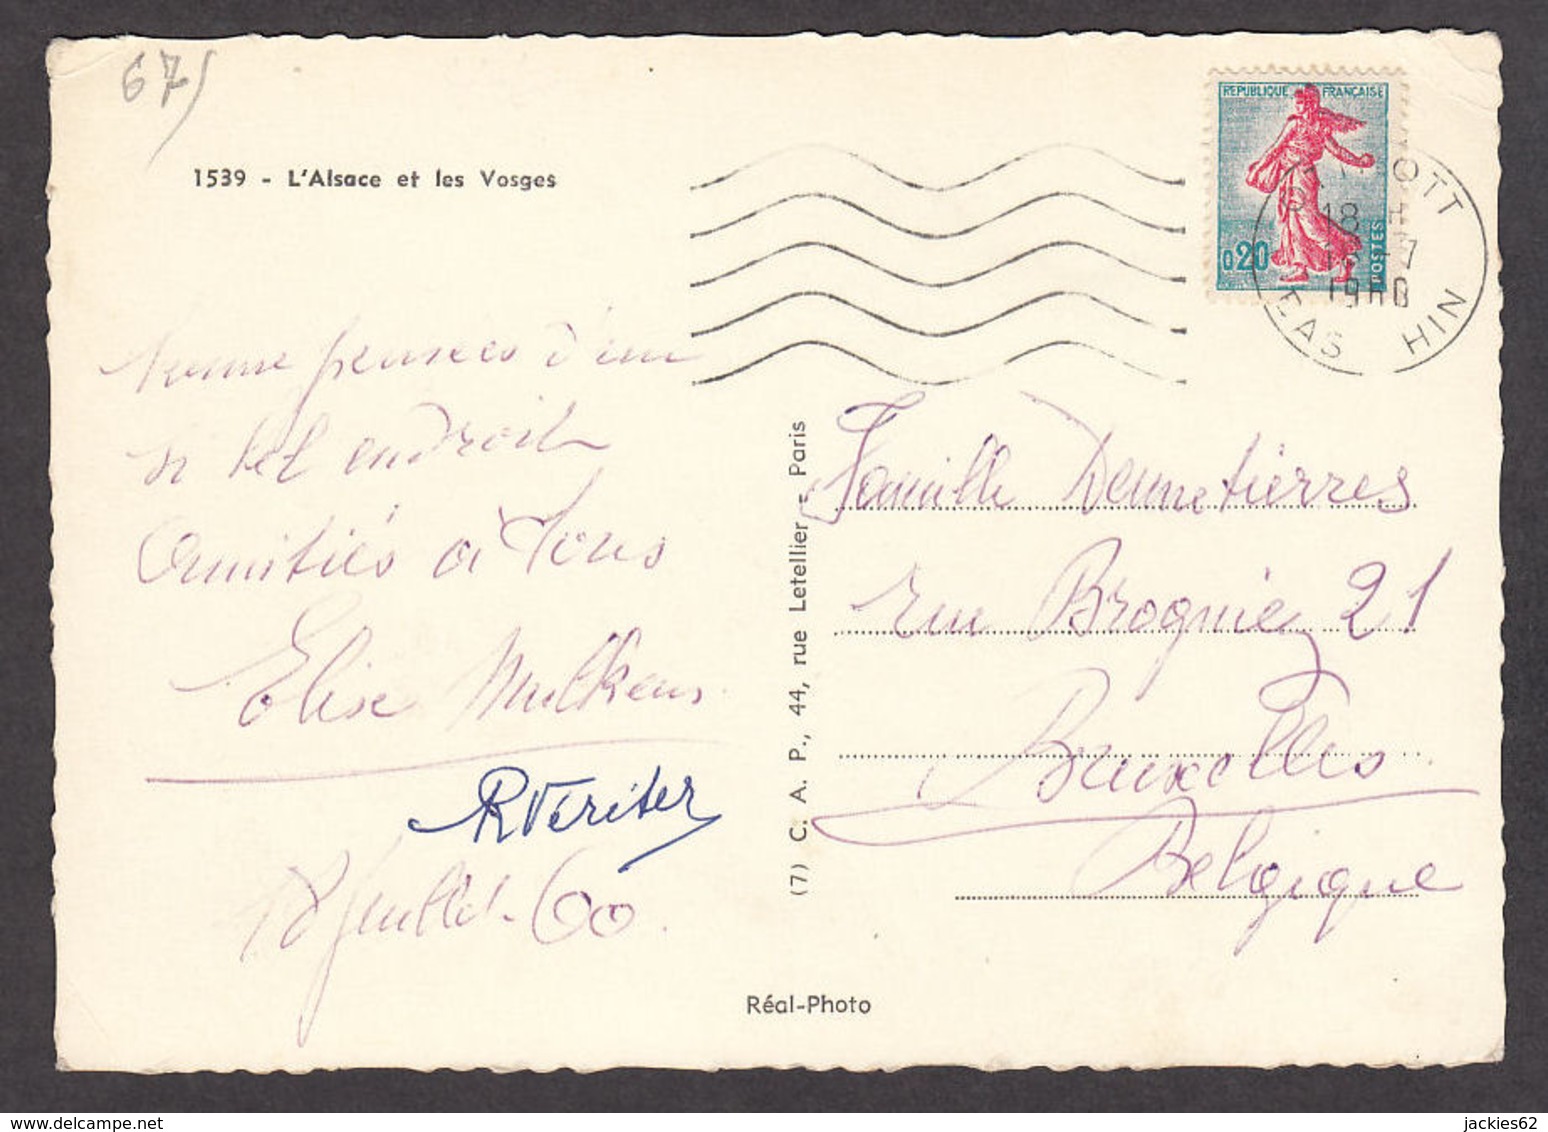 67
1539 - L'Alsace et les Vosges
REPUBLIQUE FRANÇAISE
0,20
POSTES
OTTROTT
18 H
-7
1960
BAS RHIN
pensées d'un
si bel endroit
Amitiés à tous
Elise Mulkens
R Veriter
18 Juillet-60.
(7) C. A. P., 44, rue Letellier - Paris
Famille Demetierres
rue Brogniez 21
Bruxelles
Belgique
Réal-Photo
jackies62